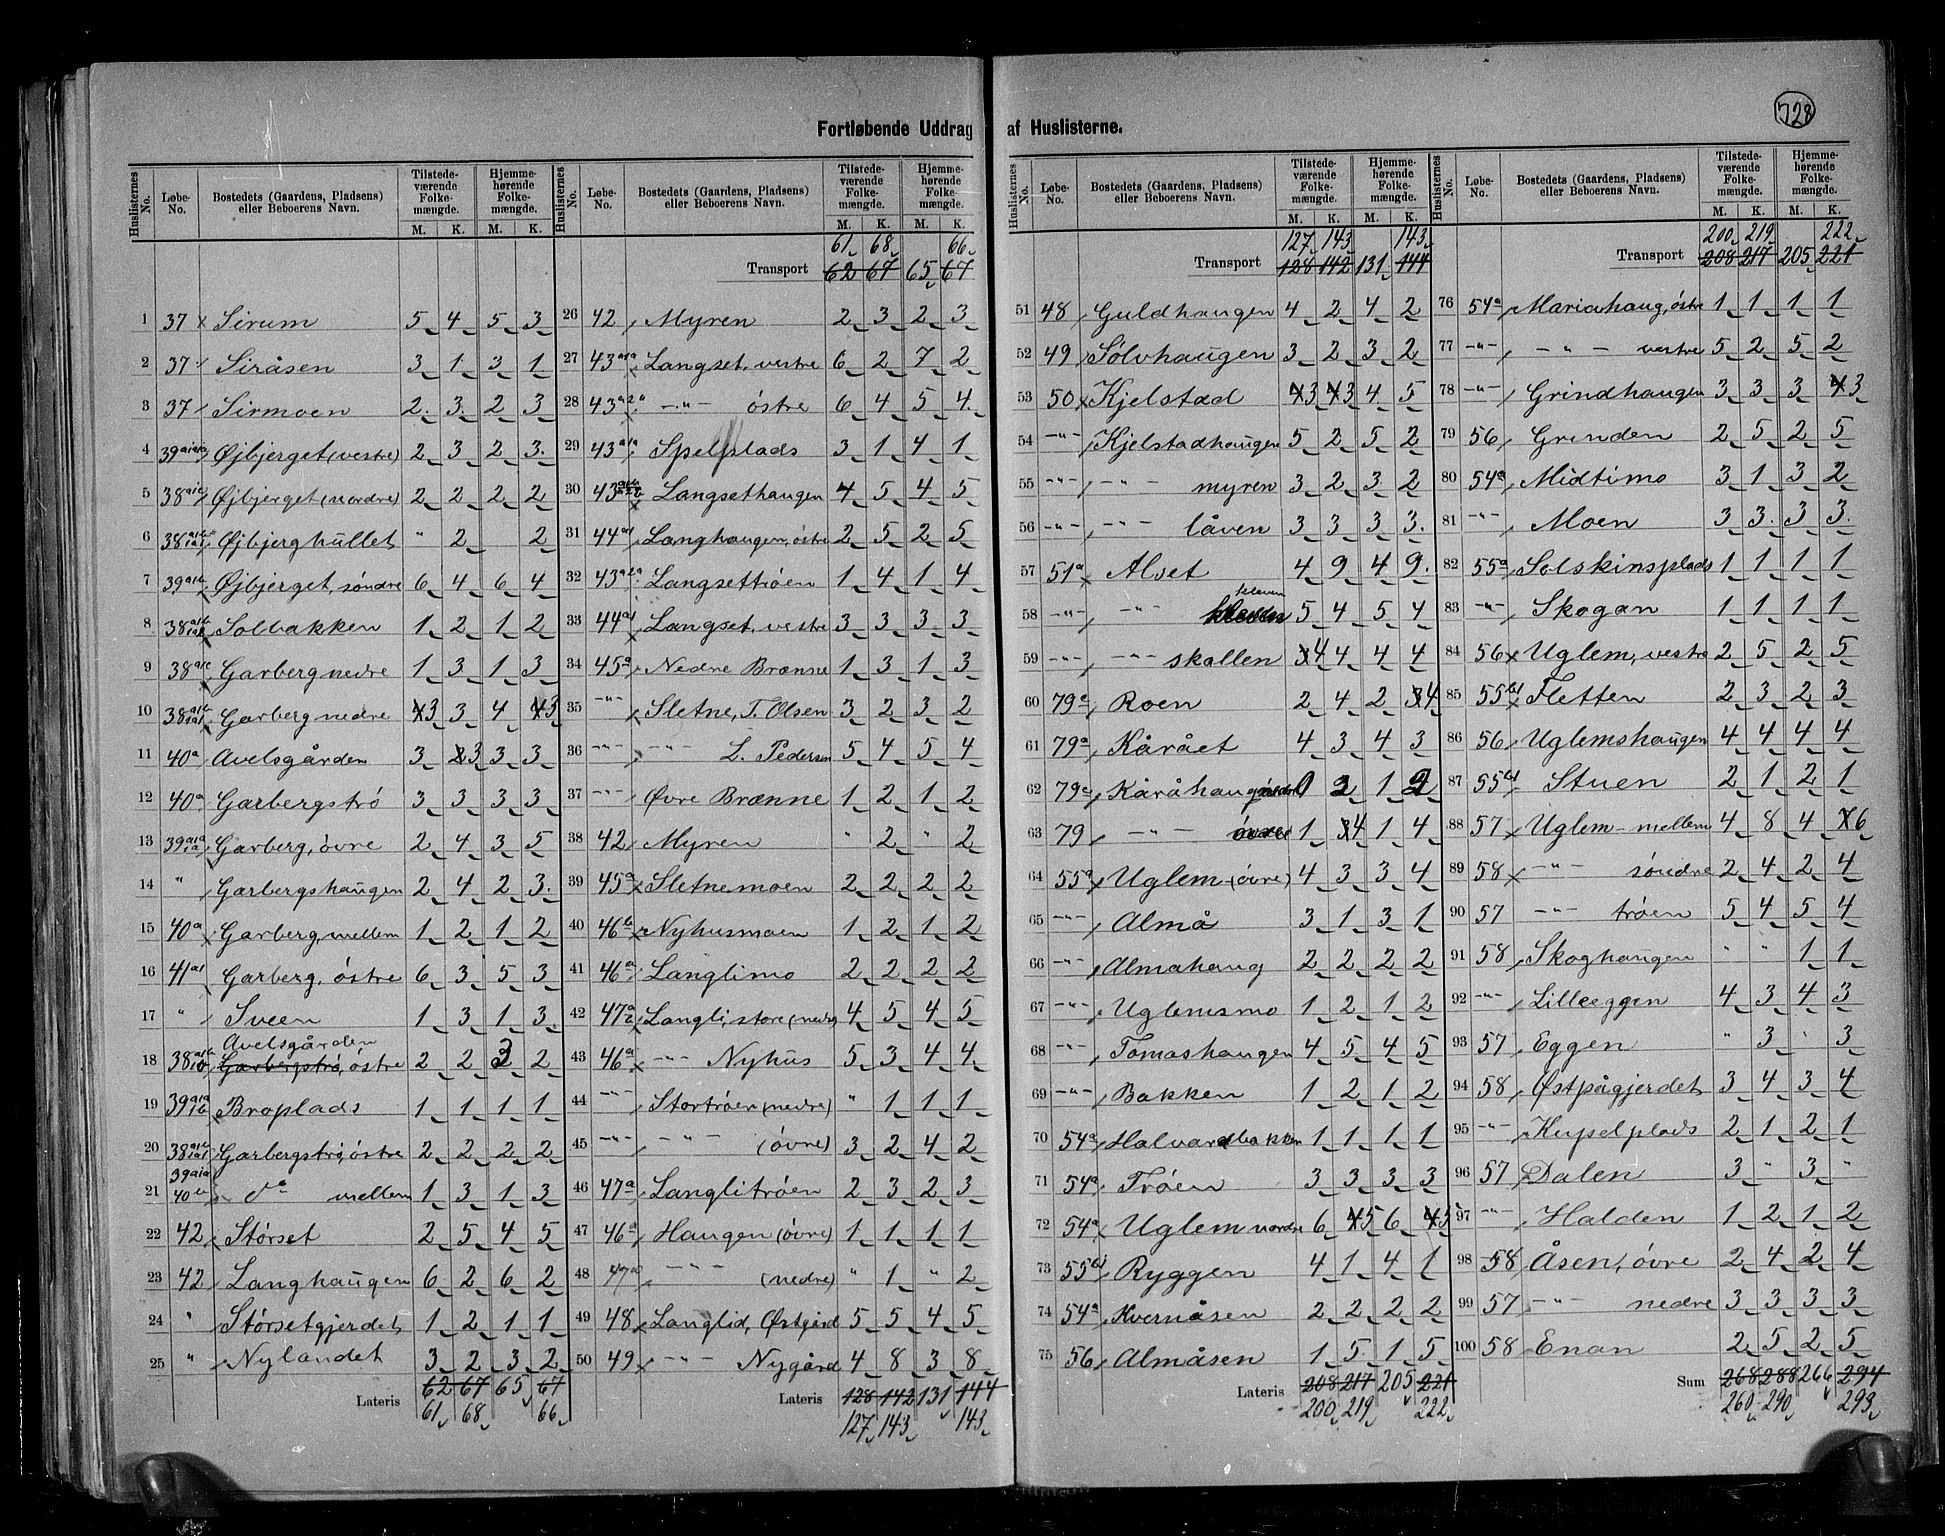 728
Fortløbende Uddrag af Huslisterne.
Huslisternes No. | Løbe-No. | Bostedets (Gaardens, Pladsens) eller Beboerens Navn. | Tilstedeværende Folkemængde. M. K. | Hjemmehørende Folkemængde. M. K.
1 37 Sirum 5 4 5 3
2 37 Siråsen 3 1 3 1
3 37 Sirmoen 2 3 2 3
4 39 Øjbjerget (vestre) 2 3 2 3
5 38 Øjbjerget (nordre) 2 2 2 2
6 38 Øjbjerghullet " 2 2
7 39 Øjbjerget, søndre 6 4 6 4
8 38 Solbakken 1 2 1 2
9 38 Garberg nedre 1 3 1 3
10 38 Garberg nedre 4 3 3 4 4 3
11 40a Avelsgården 3 2 3 3 3
12 40a Garbergstrø 3 3 3 3
13 39 Garberg, øvre 2 4 3 5
14 " Garbergshaugen 2 4 2 3
15 40a Garberg, mellem 1 2 1 2
16 41a1 Garberg, østre 6 3 5 3
17 " Sveen 1 3 1 3
Avelsgården
18 38 Garbergstrø, østre 2 2 3 2
19 39 Broplads 1 1 1 1
20 38 Garbergstrø, østre 2 2 2 2
39a1a
21 40 do mellem 1 3 1 3
22 42 Størset 2 5 4 5
23 42 Langhaugen 6 2 6 2
24 " Størsetgjerdet 1 2 1 1
25 " Nylandet 3 2 3 2
Lateris 62 67 65 67
61 68 66
Huslisternes No. | Løbe-No. | Bostedets (Gaardens, Pladsens) eller Beboerens Navn. | Tilstedeværende Folkemængde. M. K. | Hjemmehørende Folkemængde. M. K.
61 68 66
Transport 62 67 65 67
26 42 Myren 2 3 2 3
27 43a1a Langset, vestre 6 2 7 2
28 43a2a -"- østre 6 4 5 4
29 43a1a Spelplads 3 1 4 1
30 43 Langsethaugen 4 5 4 5
31 44a1 Langhaugen, østre 2 5 2 5
32 43a2a Langsettrøen 1 4 1 4
33 44a1 Langset, vestre 3 3 3 3
34 45a Nedre Brænne 1 3 1 3
35 -"- Sletne, T. Olsen 3 2 3 2
36 -"- -"- L. Pedersen 5 4 5 4
37 -"- Øvre Brænne 1 2 1 2
38 42 Myren " 2 " 2
39 45a Sletnemoen 2 2 2 2
40 46b Nyhusmoen 1 2 1 2
41 46a Langlimo 2 2 2 2
42 47a Langli, store (nedre) 4 5 4 5
43 46a -"- Nyhus 5 3 4 4
44 -"- Stortrøen (nedre) " 1 1 1
45 -"- -"- (øvre) 3 2 4 2
46 47a Langlitrøen 2 3 2 3
47 46a Haugen (øvre) 1 1 1 1
48 47a -"- (nedre) " 1 " 2
49 48 Langlid, Østgård 5 5 4 5
50 49 -"- Nygård 4 8 3 8
Lateris 128 142 131 144
127 143 143
Huslisternes No. | Løbe-No. | Bostedets (Gaardens, Pladsens) eller Beboerens Navn. | Tilstedeværende Folkemængde. M. K. | Hjemmehørende Folkemængde. M. K.
127 143 143
Transport 128 142 131 144
51 48 Guldhaugen 4 2 4 2
52 49 Sølvhaugen 3 2 3 2
53 50 Kjelstad 4 3 4 3 4 5
54 -"- Kjelstadhaugen 5 2 5 2
55 -"- -"- myren 3 2 3 2
56 -"- -"- låven 3 3 3 3
57 51a Alset 4 9 4 9
58 -"- -"- 5 4 5 4
59 -"- -"- skallen 3 4 4 4 4
60 79a Roen 2 4 2 3 4
61 79a Kårået 4 3 4 3
62 79a Kåråhaug nedre 1 2 1 2
63 79 -"- øvre 1 3 4 1 4
64 55a Uglem (øvre) 4 3 3 4
65 -"- Almå 3 1 3 1
66 -"- Almahaug 2 2 2 2
67 -"- Uglemsmo 1 2 1 2
68 -"- Tomashaugen 4 5 4 5
69 -"- Bakken 1 2 1 2
70 54a Halvardbakken 1 1 1 1
71 54a Trøen 3 3 3 3
72 54a Uglem nordre 6 4 5 6 4 5
73 55b1 Ryggen 4 1 4 1
74 54a Kvernåsen 2 2 2 2
75 56 Almåsen 1 5 1 5
Lateris 208 217 205 221
200 219 222
Huslisternes No. | Løbe-No. | Bostedets (Gaardens, Pladsens) eller Beboerens Navn. | Tilstedeværende Folkemængde. M. K. | Hjemmehørende Folkemængde. M. K.
200 219 222
Transport 208 217 205 221
76 54a Mariahaug, østre 1 1 1 1
77 -"- -"- vestre 5 2 5 2
78 -"- Grindhaugen 3 3 3 4 3
79 56 Grinden 2 5 2 5
80 54a Midtimo 3 1 3 2
81 -"- Moen 3 3 3 3
82 55a Solskinsplads 1 1 1 1
83 -"- Skogan 1 1 1 1
84 56 Uglem, vestre 2 5 2 5
85 55b1 Fletten 2 3 2 3
86 56 Uglemshaugen 4 4 4 4
87 55b1 Stuen 2 1 2 1
88 57 Uglem-mellem 4 8 4 7 6
89 58 -"- søndre 2 4 2 4
90 57 -"- trøen 5 4 5 4
91 58 Skoghaugen " " 1 1
92 -"- Lilleeggen 4 3 4 3
93 57 Eggen " 3 " 3
94 58 Østpågjerdet 3 4 3 4
95 -"- Kupelplads 2 1 2 1
96 57 Dalen 3 " 3 "
97 -"- Halden 1 2 1 2
98 58 Åsen, øvre 2 4 2 4
99 57 -"- nedre 3 3 3 3
100 58 Enan 2 5 2 5
Sum 268 288 266 294
260 290 293